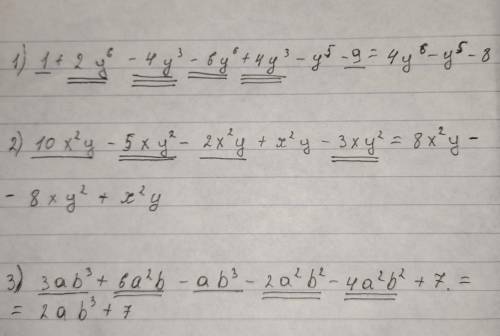 1) 1 + 2y⁶ - 4y³ - 6y⁶ + 4y³ - y⁵ - 9 = 4y⁶ - y⁵ - 8
2) 10x²y - 5xy² - 2x²y + x²y - 3xy² = 8x²y -
- 8xy² + x²y
3) 3ab³ + 6a²b - ab³ - 2a²b² - 4a²b² + 7. =
= 2ab³ + 7